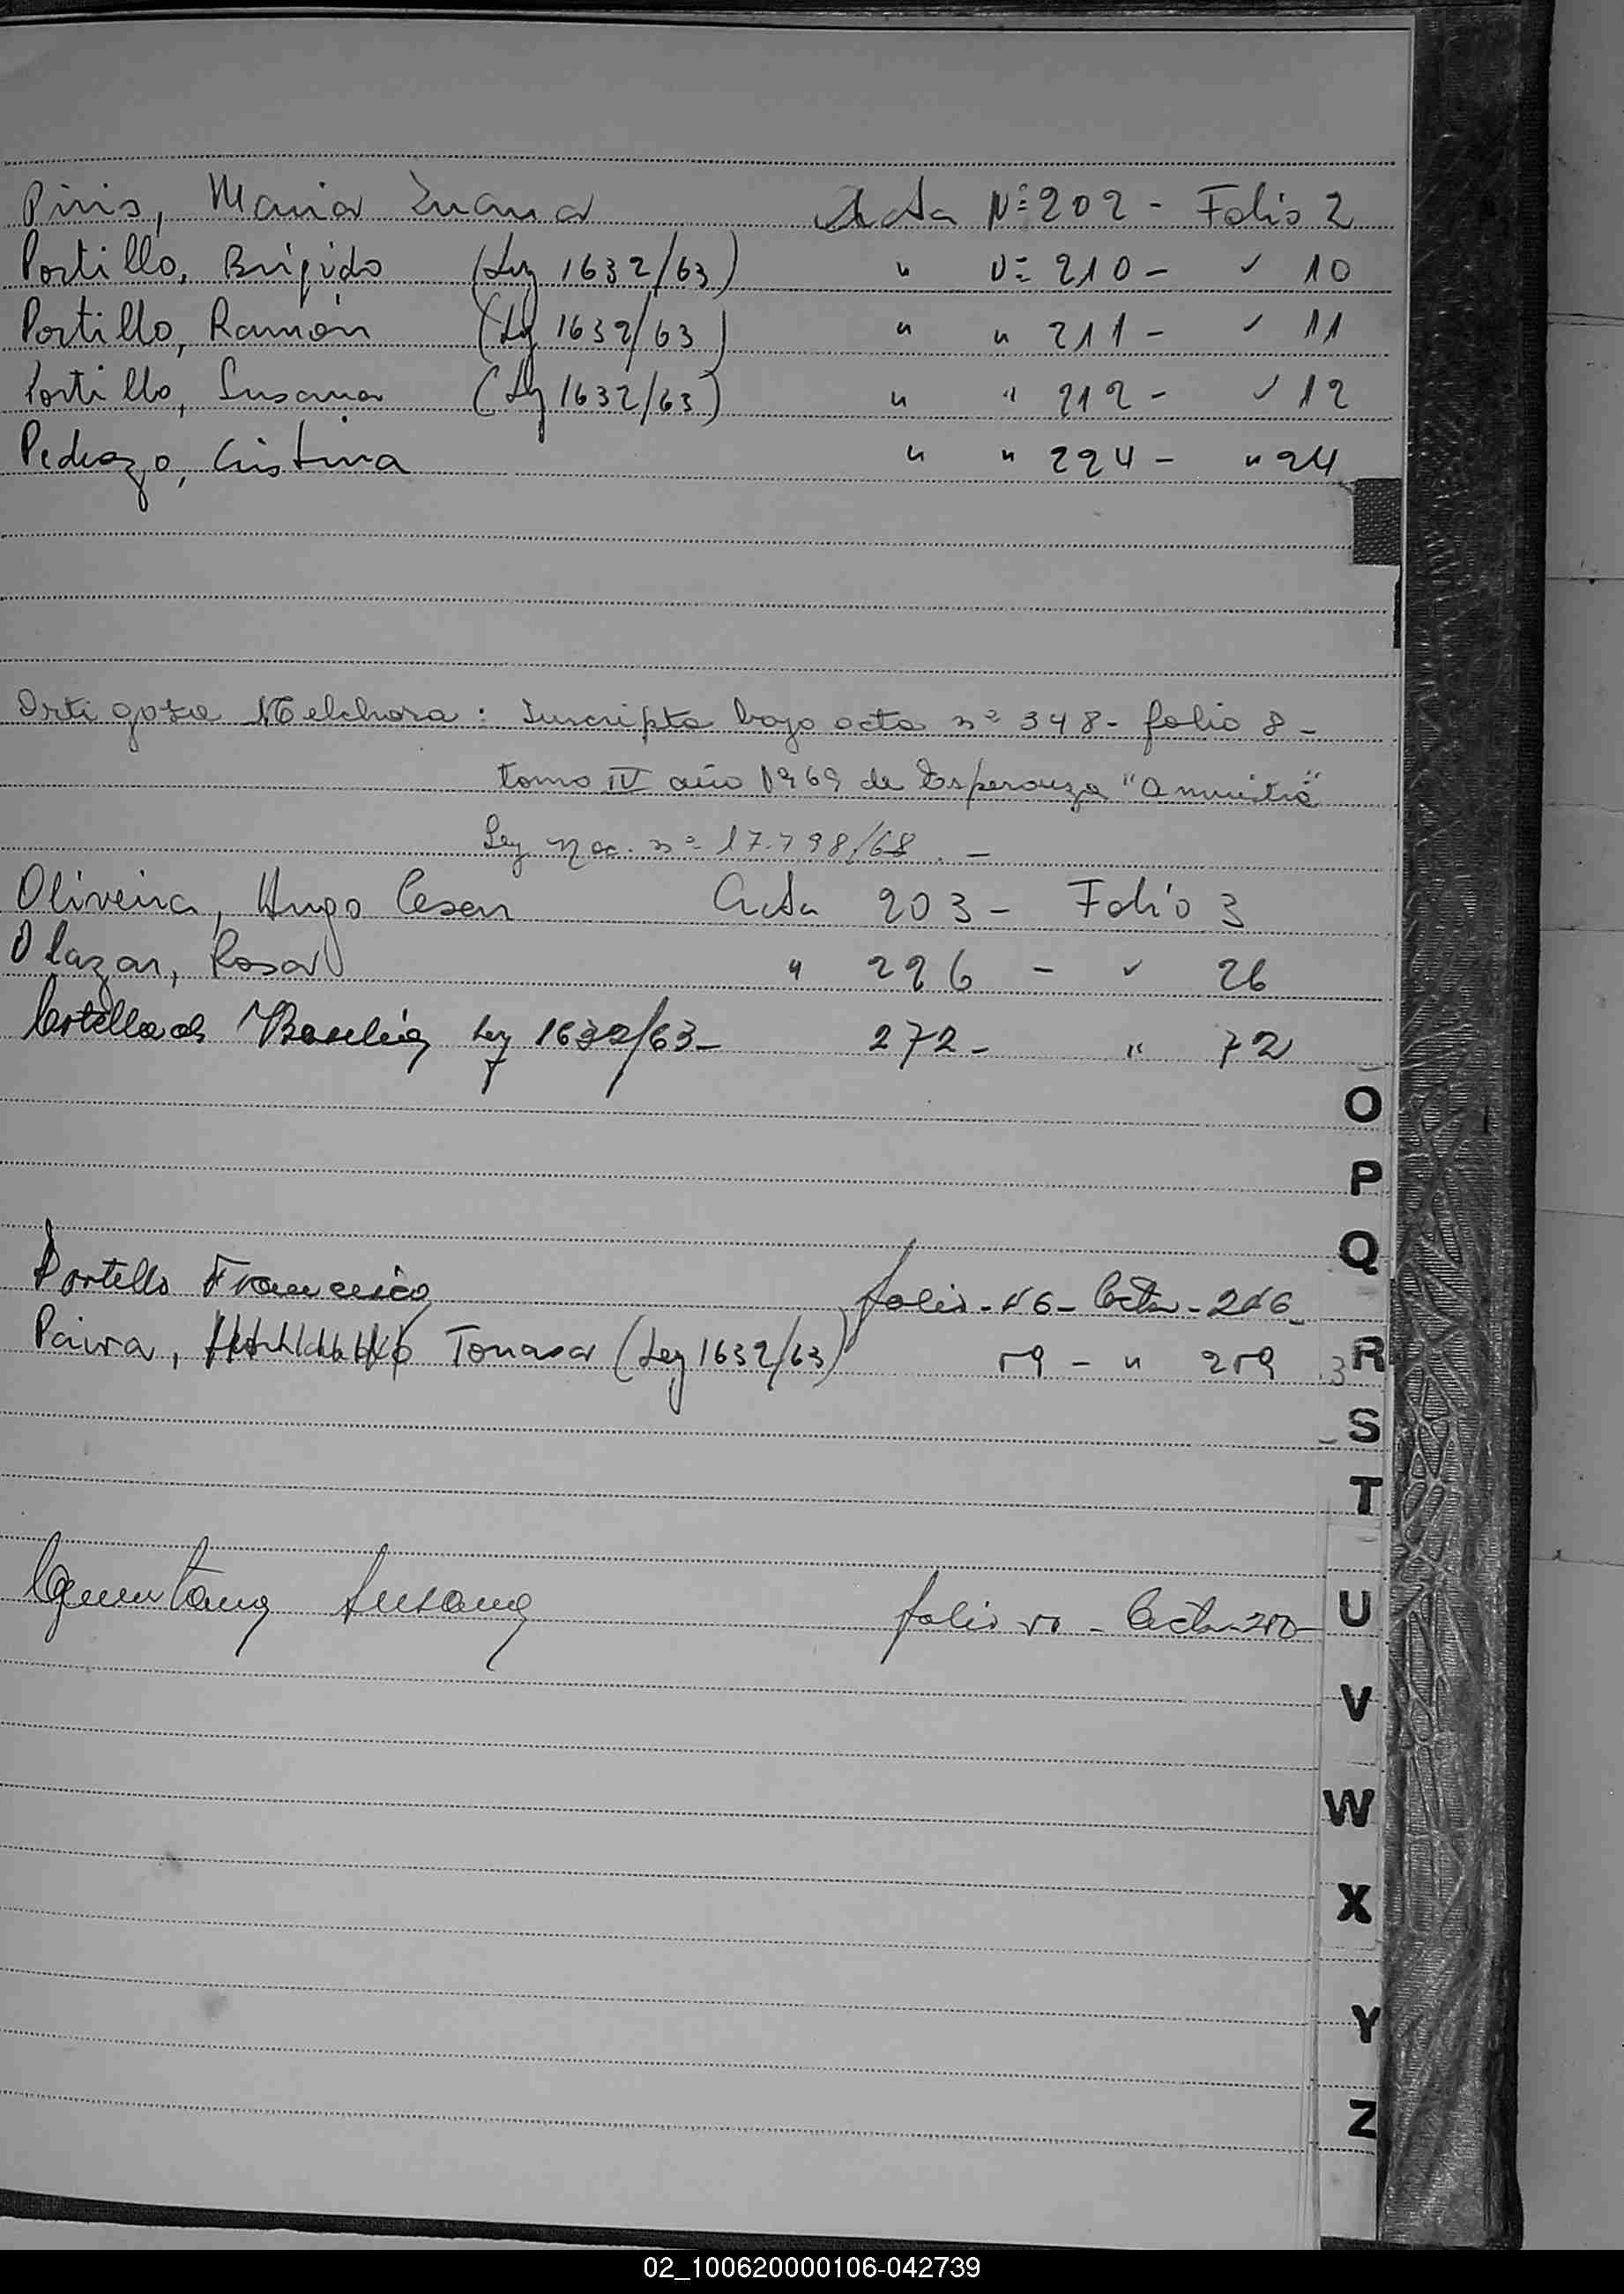 Piris, Maria Juana Acta Nº 202 - Folio 2
Portillo, Brígido (Ley 1632/63) " Nº 210 - " 10
Portillo, Ramón (Ley 1632/63) " " 211 - " 11
Portillo, Susana (Ley 1632/63) " " 212 - " 12
Pedrozo, Cristina " " 224 - " 24
Ortigoza Melchora: Inscripta bajo acta nº 348 - folio 8 -
tomo IV año 1969 de Esperanza "Amnistia"
Ley Nac. nº 17.798/68. -
Oliveira, Hugo Cesar Acta 203 - Folio 3
Olazar, Rosa " 226 - " 26
Ley 1632/63 - 272 - " 72
O
P
Q
Portillo Francisco folio - 46 - Acta - 246
Paiva, Tomasa (Ley 1632/63) 59 - " 259
R
S
T
Quintana Susana folio 50 - Acta - 250 -
U
V
W
X
Y
Z
02_100620000106-042739